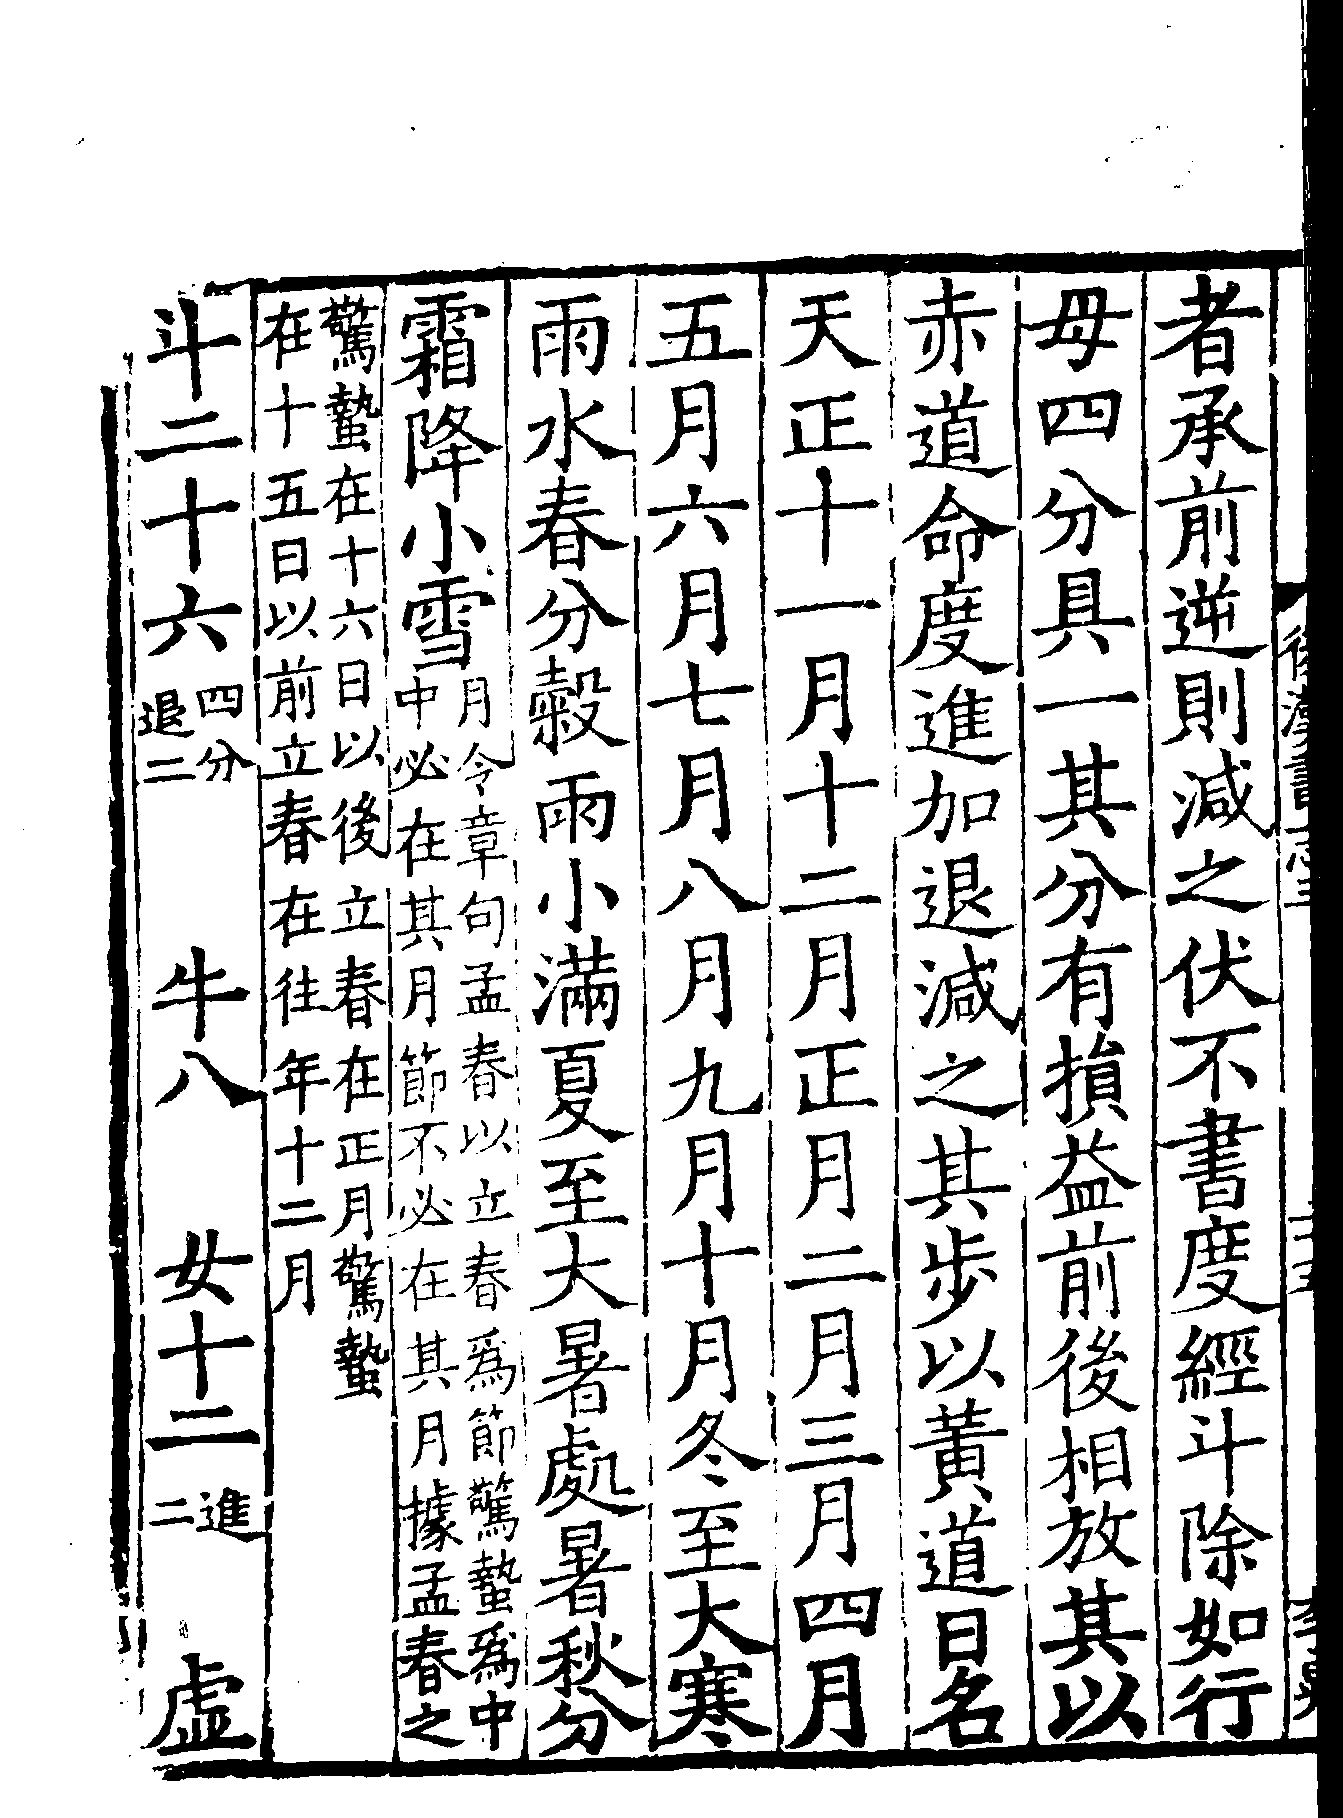 後漢書志三
者承前逆則減之伏不書度經斗除如行
母四分具一其分有損益前後相放其以
赤道命度進加退減之其步以黃道日名
天正十一月十二月正月二月三月四月
五月六月七月八月九月十月冬至大寒
雨水春分穀雨小滿夏至大暑處暑秋分
霜降小雪
月令章句孟春以立春爲節驚蟄爲中
中必在其月節不必在其月據孟春之
驚蟄在十六日以後立春在正月驚蟄
在十五日以前立春在往年十二月
斗二十六 四分退二 牛八 女十二 進二 虛